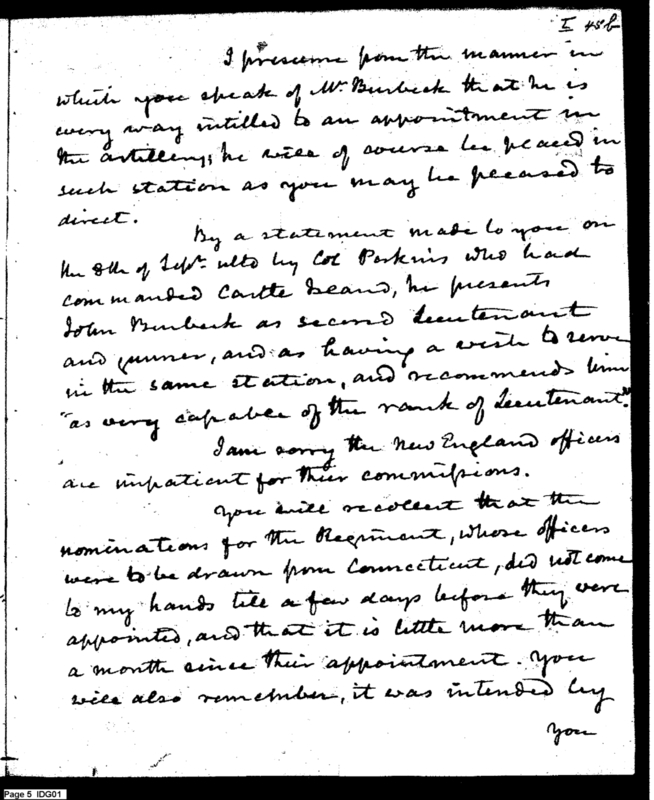 I 45b
I presume from the manner in
which you speak of Mr. Burbeck that he is
every way intilled to an appointment in
the artillery; he will of course be placed in
such station as you may be pleased to
direct.
By a statement made to you on
the 8th of Sepr. ulto by Col Perkins who had
commanded Castle Island, he presents
John Burbeck as second Lieutenant
and gunner, and as having a wish to serve
in the same station, and recommends him
"as very capable of the rank of Lieutenant."
I am sorry the New England officers
are impatient for their commissions.
You will recollect that the
nominations for the Regiment, whose officers
were to be drawn from Connecticut, did not come
to my hands till a few days before they were
appointed, and that it is little more than
a month since their appointment. You
will also remember, it was intended by
you
Page 5 IDG01